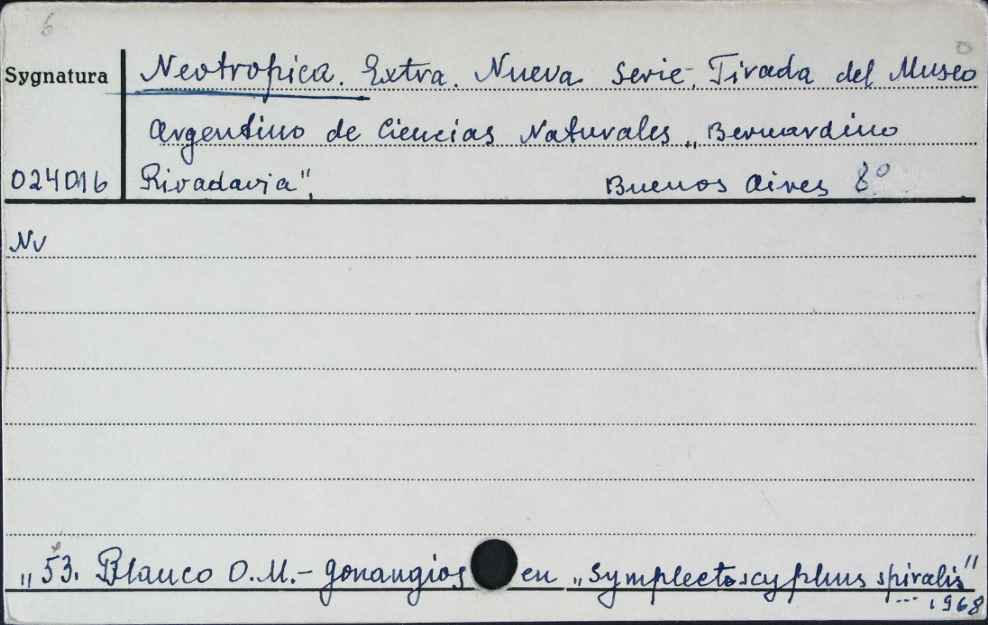 6
Sygnatura Neotropica. Extra. Nueva Serie. Tirada del Museo
Argentino de Ciencias Naturales „Bernardino
024016 Rivadavia", Buenos Aires 8°
Nv
„53. Blanco O.M.- Gonangios en „Symplectoscyphus spiralis"
... 1968